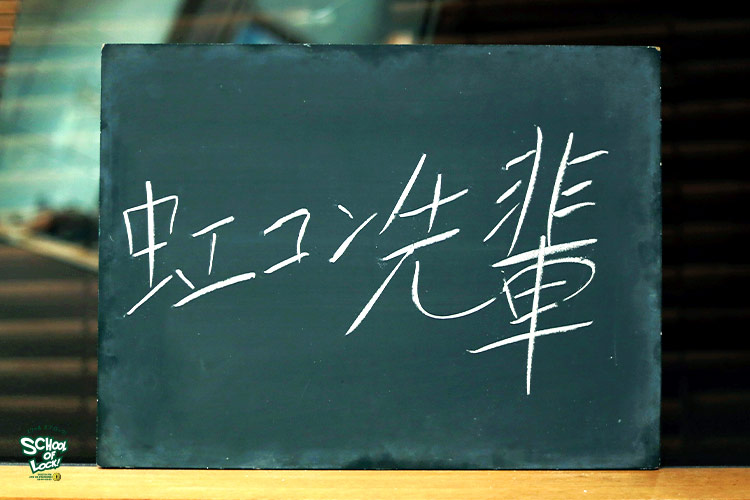 虹コン先輩
SCHOOL
OF
LOCK!